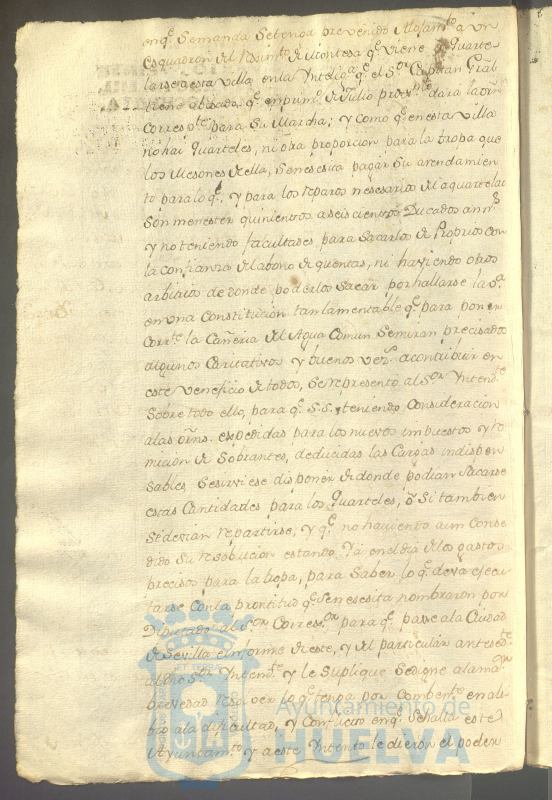 en q.e Semanda Setenga prevenido Alojam.to a un
Esquadron del Reximto de Montesa q.e viene a Quarte
larse a esta Villa en la Ynteliga q.e el S.or Capitan Gral
tiene abisado, q.e en prim.o de Julio prox.mo dara la orn
Corresp.te para Su Marcha; y como q.e en esta Villa
no hai Quarteles, ni otra proporcion para la tropa que
los Mesones de ella, Se nesesita pagar Su arrendamien
to para lo q.l, y para los reparos nesesarios del aquartelar
Son menester quinientos a seis cientos Ducados an.s
y no teniendo facultades para Sacarlos de Propios con
la confianza del abono de quentas, ni haviendo otros
arbitrios de donde poderlos Sacar por hallarse la S.a
en una Constitucion tan lamentable q.e para poner
Corr.te la Cañeria del Agua Comun Semiran precisados
algunos Caritativos y buenos vez.s a contibuir en
este Veneficio de todos, Se represento al S.or Yntend.te
Sobre todo ello, para q.e S.S. teniendo Consideracion
a las orns. expedidas para los nuevos impuestos y to
micion de Sobrantes, deducidas las Cargas indispen
Sables, Se sirviese disponer de donde podian Sacarse
estas Cantidades para los Quarteles, o Si tambien
Se devian repartirse, y q.e no haviendo aun Conse
dido Su resolucion estando Ya en el dia de los gastos
precisos para la tropa, para Saber lo q.e deva ejecu
tarse Con la prontitud q.e Senesesita nombraron por
Diputado al S.or Correg.or para q.e pase a la Ciudad
de Sevilla e informe de este, y del particular antesed.te
al dho S.or Yntend.te y le Suplique Se digne a la ma.or
brevedad resolver lo q.e tenga por Combente en ali
bio a la dificultad, y Conflicto en q.e Se halla este
Ayuntam.to y a este Yntento le dieron el poder
Ayuntamiento de
HUELVA